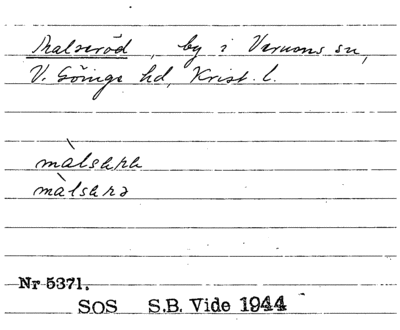 Malseröd, by i Verums sn,
V. Göinge hd, Krist. l.
màlsarə
Nr 5371.
SOS S.B. Vide 1944